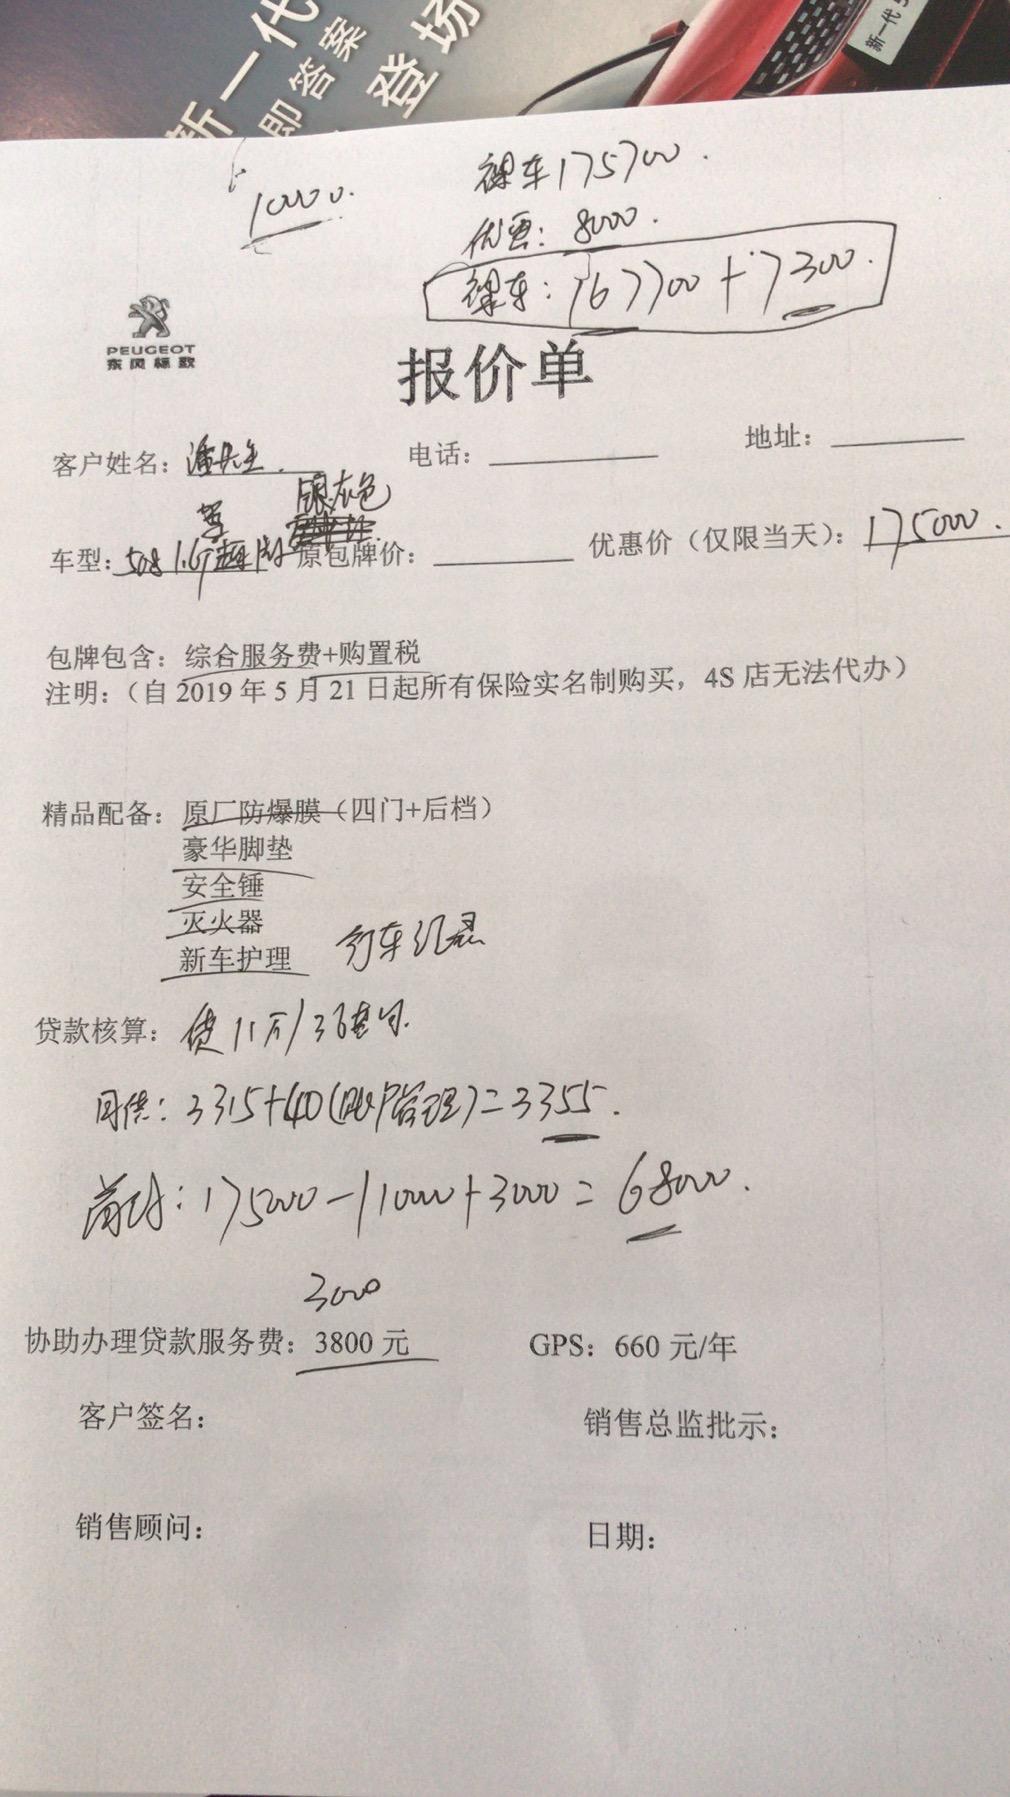 新一代
即答案
登场
新一代5
10000.
裸车175700.
优惠: 8000.
裸车: 167700+7300.
PEUGEOT
东风标致
报价单
客户姓名: 潘先生.
电话:
地址:
银灰色
车型: 508 1.6T
原包牌价:
优惠价（仅限当天）: 175000.
包牌包含: 综合服务费+购置税
注明:（自 2019 年 5 月 21 日起所有保险实名制购买，4S 店无法代办）
精品配备: 原厂防爆膜（四门+后档）
豪华脚垫
安全锤
灭火器
新车护理 行车记录
贷款核算: 贷11万/36
月供: 3315+40(账户管理)=3355.
首付: 175000-110000+3000=68000.
3000
协助办理贷款服务费: 3800 元
GPS: 660 元/年
客户签名:
销售总监批示:
销售顾问:
日期: